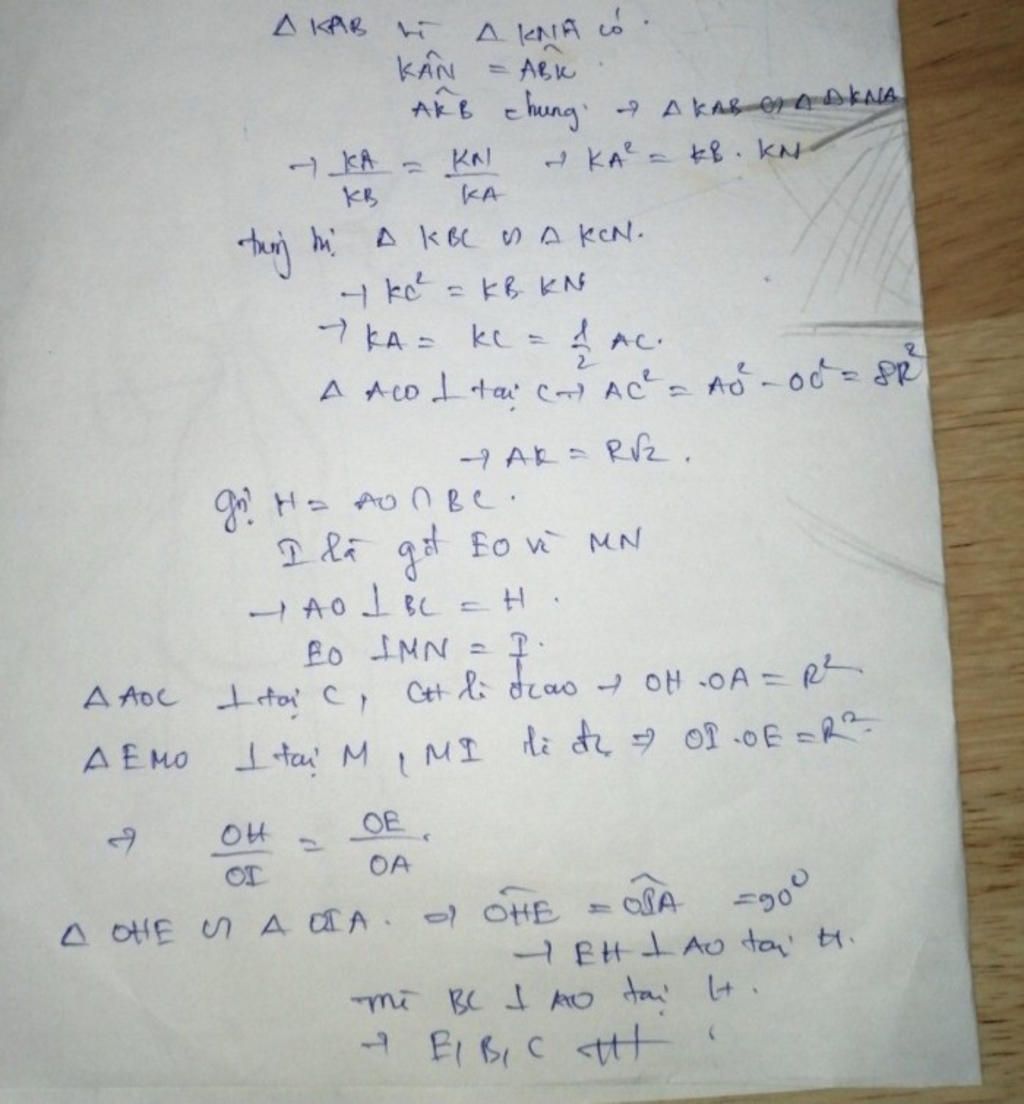 Δ KAB và Δ KNA có.
KÂN = AB̂K
AK̂B chung → Δ KAB ∽ Δ KNA
→ KA/KB = KN/KA → KA² = KB . KN
tương tự Δ KBC ∽ Δ KCN.
→ KC² = KB KN
→ KA = KC = 1/2 AC.
Δ ACO ⊥ tại C → AC² = AO² - OC² = 8R²
→ AK = R√2.
gọi H = AO ∩ BC.
I là gđ EO và MN
→ AO ⊥ BC = H.
EO ⊥ MN = I.
Δ AOC ⊥ tại C, CH là đcao → OH . OA = R²
Δ EMO ⊥ tại M, MI là đc ⇒ OI . OE = R²
⇒ OH/OI = OE/OA.
Δ OHE ∽ Δ OIA. ⇒ OĤE = OÎA = 90⁰
→ EH ⊥ AO tại H.
mà BC ⊥ AO tại H.
→ E, B, C tH